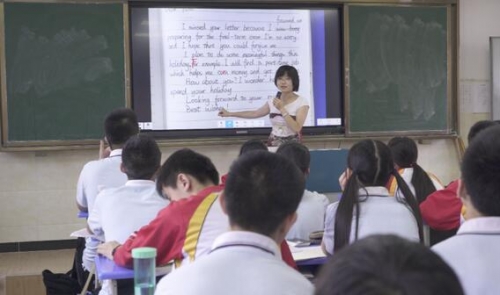 focused on
I missed your letter because I was busy
preparing for the final-term exam. I'm so sorry
and I hope that you could forgive me.
I plan to do some meaningful things this
holiday, For example, I will find a part-time job
which helps me earn money and
How about you? I wonder how
spend your holiday.
Looking forward to your
Best wishes!